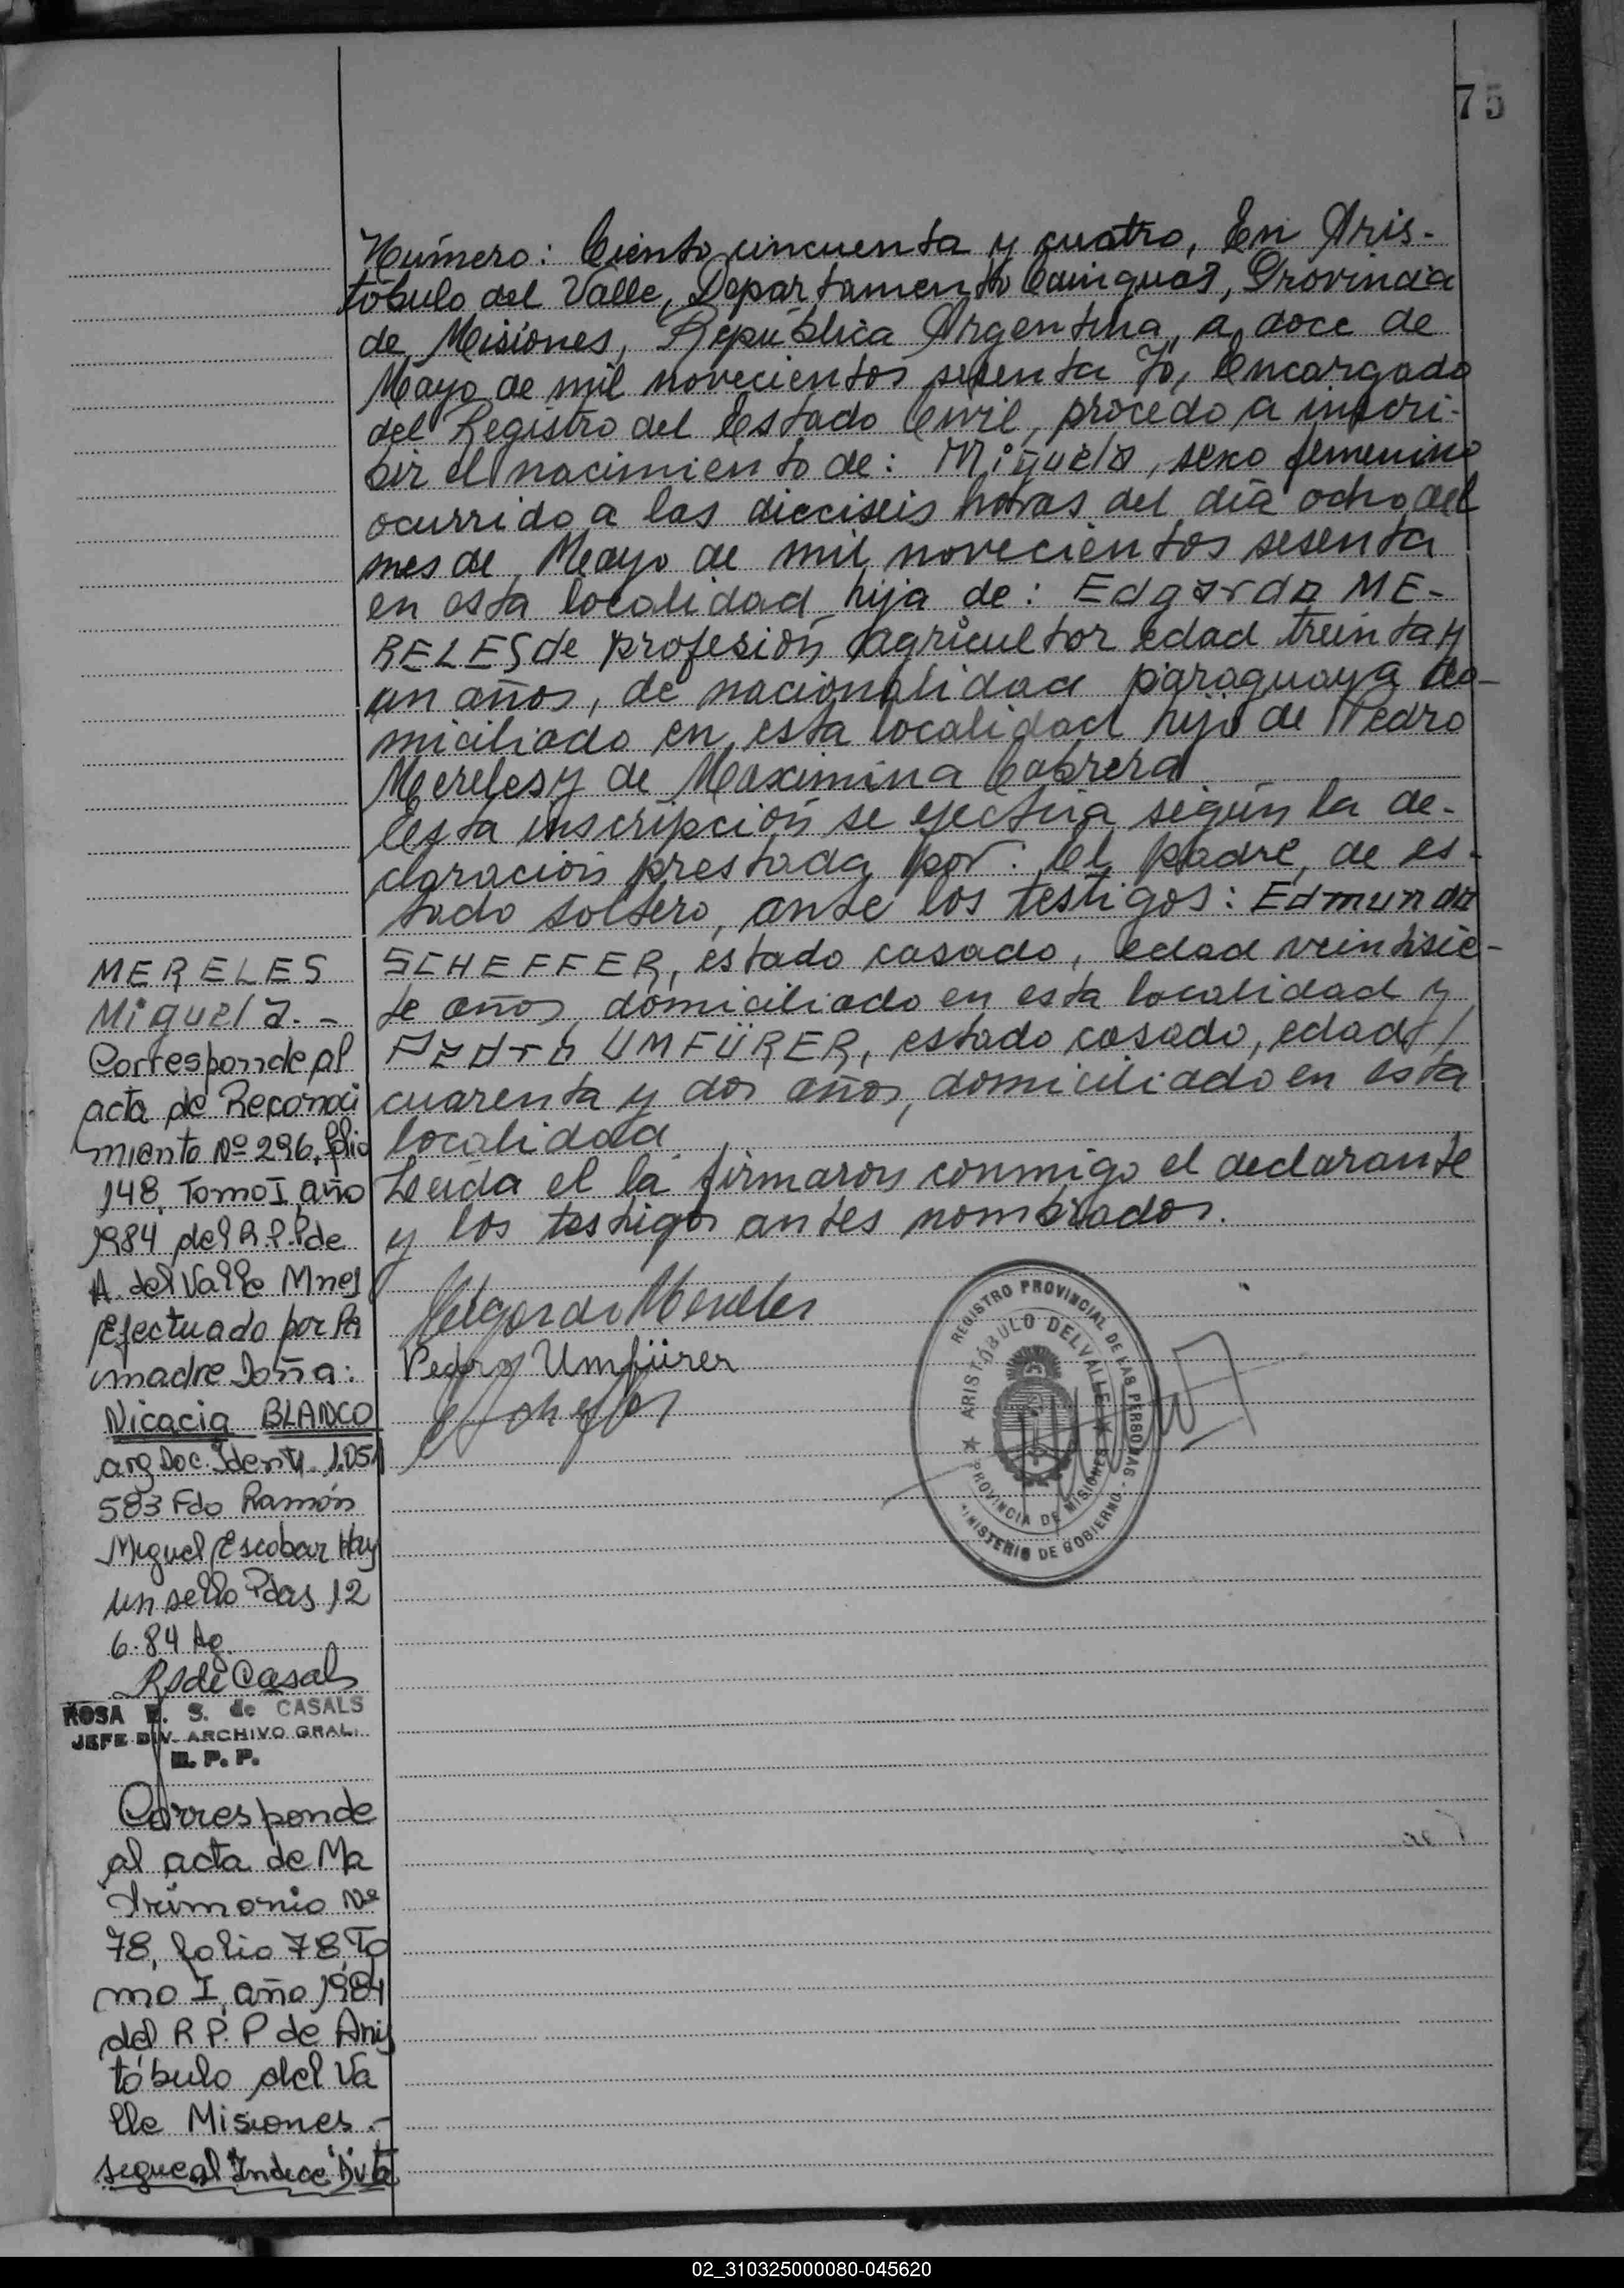 75
Número: Ciento cincuenta y cuatro, En Aris-
tóbulo del Valle, Departamento Cainguas, Provincia
de Misiones, República Argentina, a doce de
Mayo de mil novecientos sesenta Yo, Encargado
del Registro del Estado Civil, procedo a inscri-
bir el nacimiento de: Miguela, sexo femenino
ocurrido a las dieciseis horas del día ocho del
mes de Mayo de mil novecientos sesenta
en esta localidad hija de: Edgardo ME-
RELES de profesión agricultor edad treinta y
un años, de nacionalidad paraguaya do-
miciliado en esta localidad hijo de Pedro
Mereles y de Maximina Cabrera
Esta inscripción se efectúa según la de-
claración prestada por: el padre, de es-
tado soltero, ante los testigos: Edmundo
SCHEFFER, estado casado, edad veintisie-
te años, domiciliado en esta localidad y
Pedro UMFÜRER, estado casado, edad /
cuarenta y dos años, domiciliado en esta
localidad
Leída el la firmaron conmigo el declarante
y los testigos antes nombrados.
Edgardo Mereles
Pedro Umfürer
REGISTRO PROVINCIAL DE LAS PERSONAS - MINISTERIO DE GOBIERNO
ARISTÓBULO DEL VALLE
PROVINCIA DE MISIONES
MERELES
Miguela. -
Corresponde al
acta de Reconoci
miento Nº 296, folio
148, Tomo I, año
1984 del R.P.P de
A. del Valle Mnes
Efectuado por la
madre Doña:
Nicacia BLANCO
arg Doc. Identi. 1.051
583 Fdo Ramón
Miguel Escobar Hay
un sello Pdas 12
6.84 Ag.
RS de Casals
ROSA E. S. de CASALS
JEFE DIV. ARCHIVO GRAL.
R. P. P.
Corresponde
al acta de Ma
trimonio Nº
78, folio 78, To
mo I, año 1984
del R.P.P de Aris
tóbulo del Va
lle Misiones.-
sigue al "Indice"
02_310325000080-045620